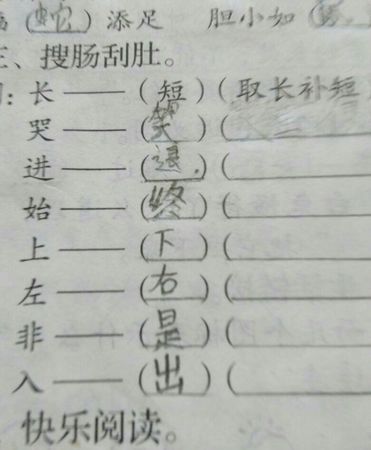 （蛇）添足 胆小如（
三、搜肠刮肚。
：长——（短）（取长补短
哭——（笑）（
进——（退）（
始——（终）（
上——（下）（
左——（右）（
非——（是）（
入——（出）（
快乐阅读。